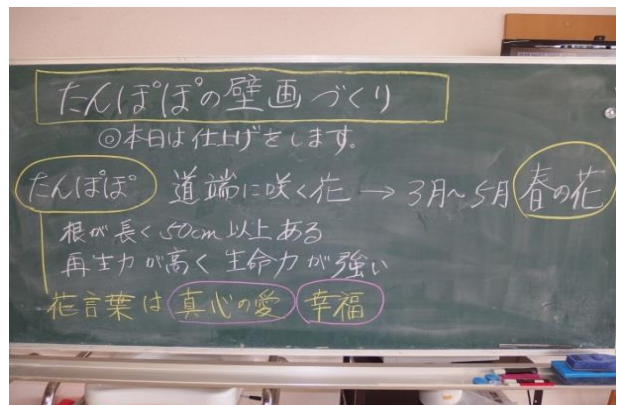 たんぽぽの壁画づくり
◎本日は仕上げをします。
たんぽぽ 道端に咲く花 → 3月~5月 春の花
根が長く50cm以上ある
再生力が高く生命力が強い
花言葉は真心の愛 幸福